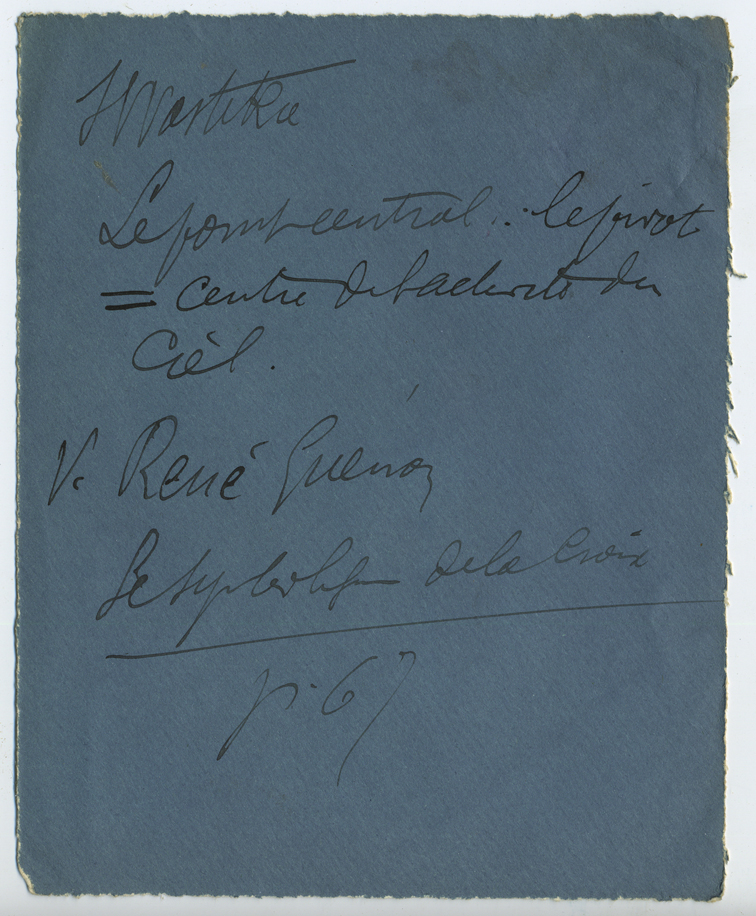 Swastika
Le point central .. le pivot
= centre de l'activité du
Ciel.
V. René Guénon
Le symbolisme de la Croix
p. 67